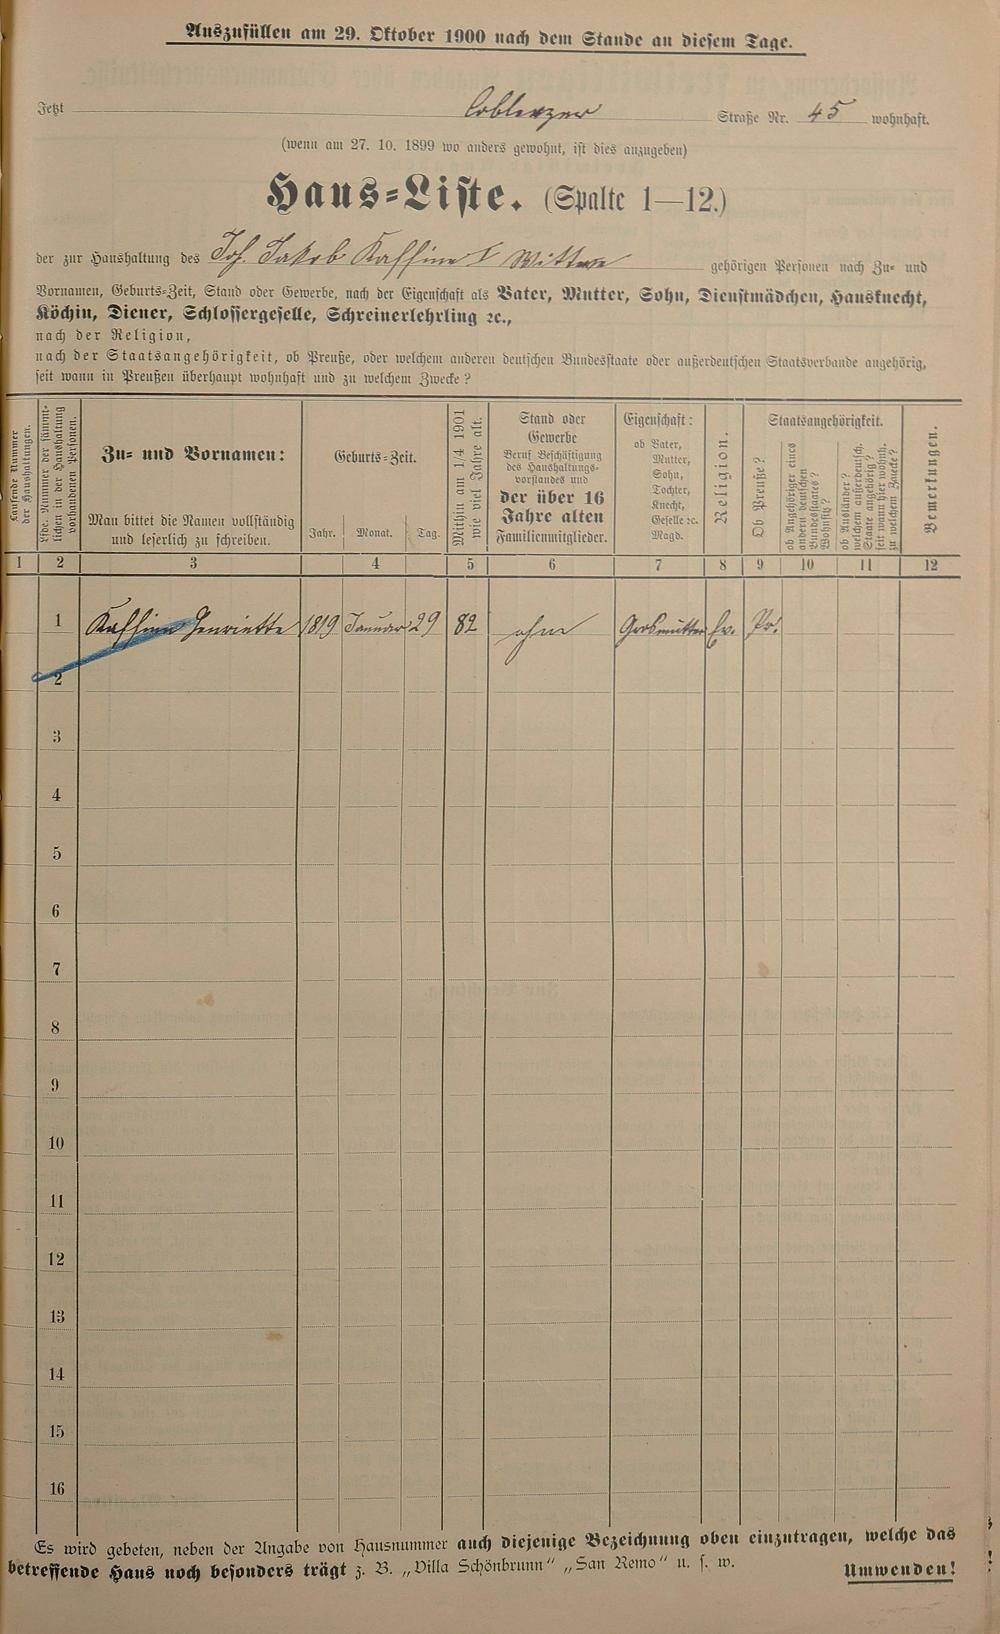 Auszufüllen am 29. Oktober 1900 nach dem Stande an diesem Tage.
Jetzt Coblenzer Straße Nr. 45 wohnhaft.
(wenn am 27. 10. 1899 wo anders gewohnt, ist dies anzugeben)
Haus=Liste. (Spalte 1—12.)
der zur Haushaltung des Joh. Jakob Wittwe gehörigen Personen nach Zu= und
Vornamen, Geburts=Zeit, Stand oder Gewerbe, nach der Eigenschaft als Vater, Mutter, Sohn, Dienstmädchen, Hausknecht,
Köchin, Diener, Schlossergeselle, Schreinerlehrling ꝛc.,
nach der Religion,
nach der Staatsangehörigkeit, ob Preuße, oder welchem anderen deutschen Bundesstaate oder außerdeutschen Staatsverbande angehörig,
seit wann in Preußen überhaupt wohnhaft und zu welchem Zwecke?
Laufende Nummer
der Haushaltungen.
Lfde. Nummer der sämmt-
lichen in der Haushaltung
vorhandenen Personen.
Zu= und Vornamen:
Man bittet die Namen vollständig
und leserlich zu schreiben.
Geburts=Zeit.
Jahr. Monat. Tag.
Mithin am 1/4 1901
wie viel Jahre alt.
Stand oder
Gewerbe
Beruf Beschäftigung
des Haushaltungs-
vorstandes und
der über 16
Jahre alten
Familienmitglieder.
Eigenschaft:
ob Vater,
Mutter,
Sohn,
Tochter,
Knecht,
Geselle ꝛc.
Magd.
Religion.
Staatsangehörigkeit.
Ob Preuße?
ob Angehöriger eines
andern deutschen
Bundesstaates?
Wohnsitz?
ob Ausländer?
welchem außerdeutsch.
Staate angehörig?
seit wann hier wohnh.
zu welchem Zwecke?
Bemerkungen.
1 2 3 4 5 6 7 8 9 10 11 12
1 Henriette 1819 Januar 29 82 ohne Großmutter Ev. Pr.
2
3
4
5
6
7
8
9
10
11
12
13
14
15
16
Es wird gebeten, neben der Angabe von Hausnummer auch diejenige Bezeichnung oben einzutragen, welche das
betreffende Haus noch besonders trägt z. B. „Villa Schönbrunn" „San Remo" u. s. w. Umwenden!